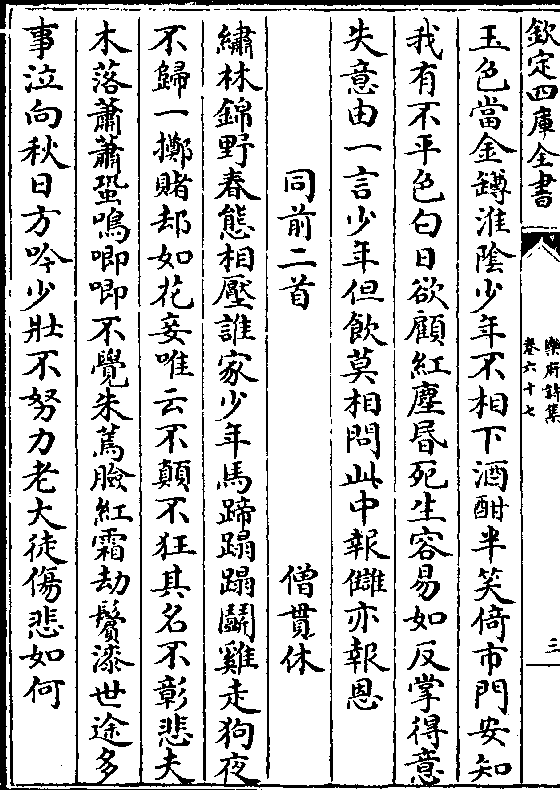 欽定四庫全書
樂府詩集
卷六十七
三
玉色當金鐏淮陰少年不相下酒酣半笑倚市門安知
我有不平色白日欲顧紅塵昏死生容易如反掌得意
失意由一言少年但飲莫相問此中報讎亦報恩
同前二首
僧貫休
繡林錦野春態相壓誰家少年馬蹄蹋蹋鬭雞走狗夜
不歸一擲賭却如花妾唯云不顛不狂其名不彰悲夫
木落蕭蕭蛩鳴唧唧不覺朱蔫臉紅霜劫鬢漆世途多
事泣向秋日方吟少壯不努力老大徒傷悲如何